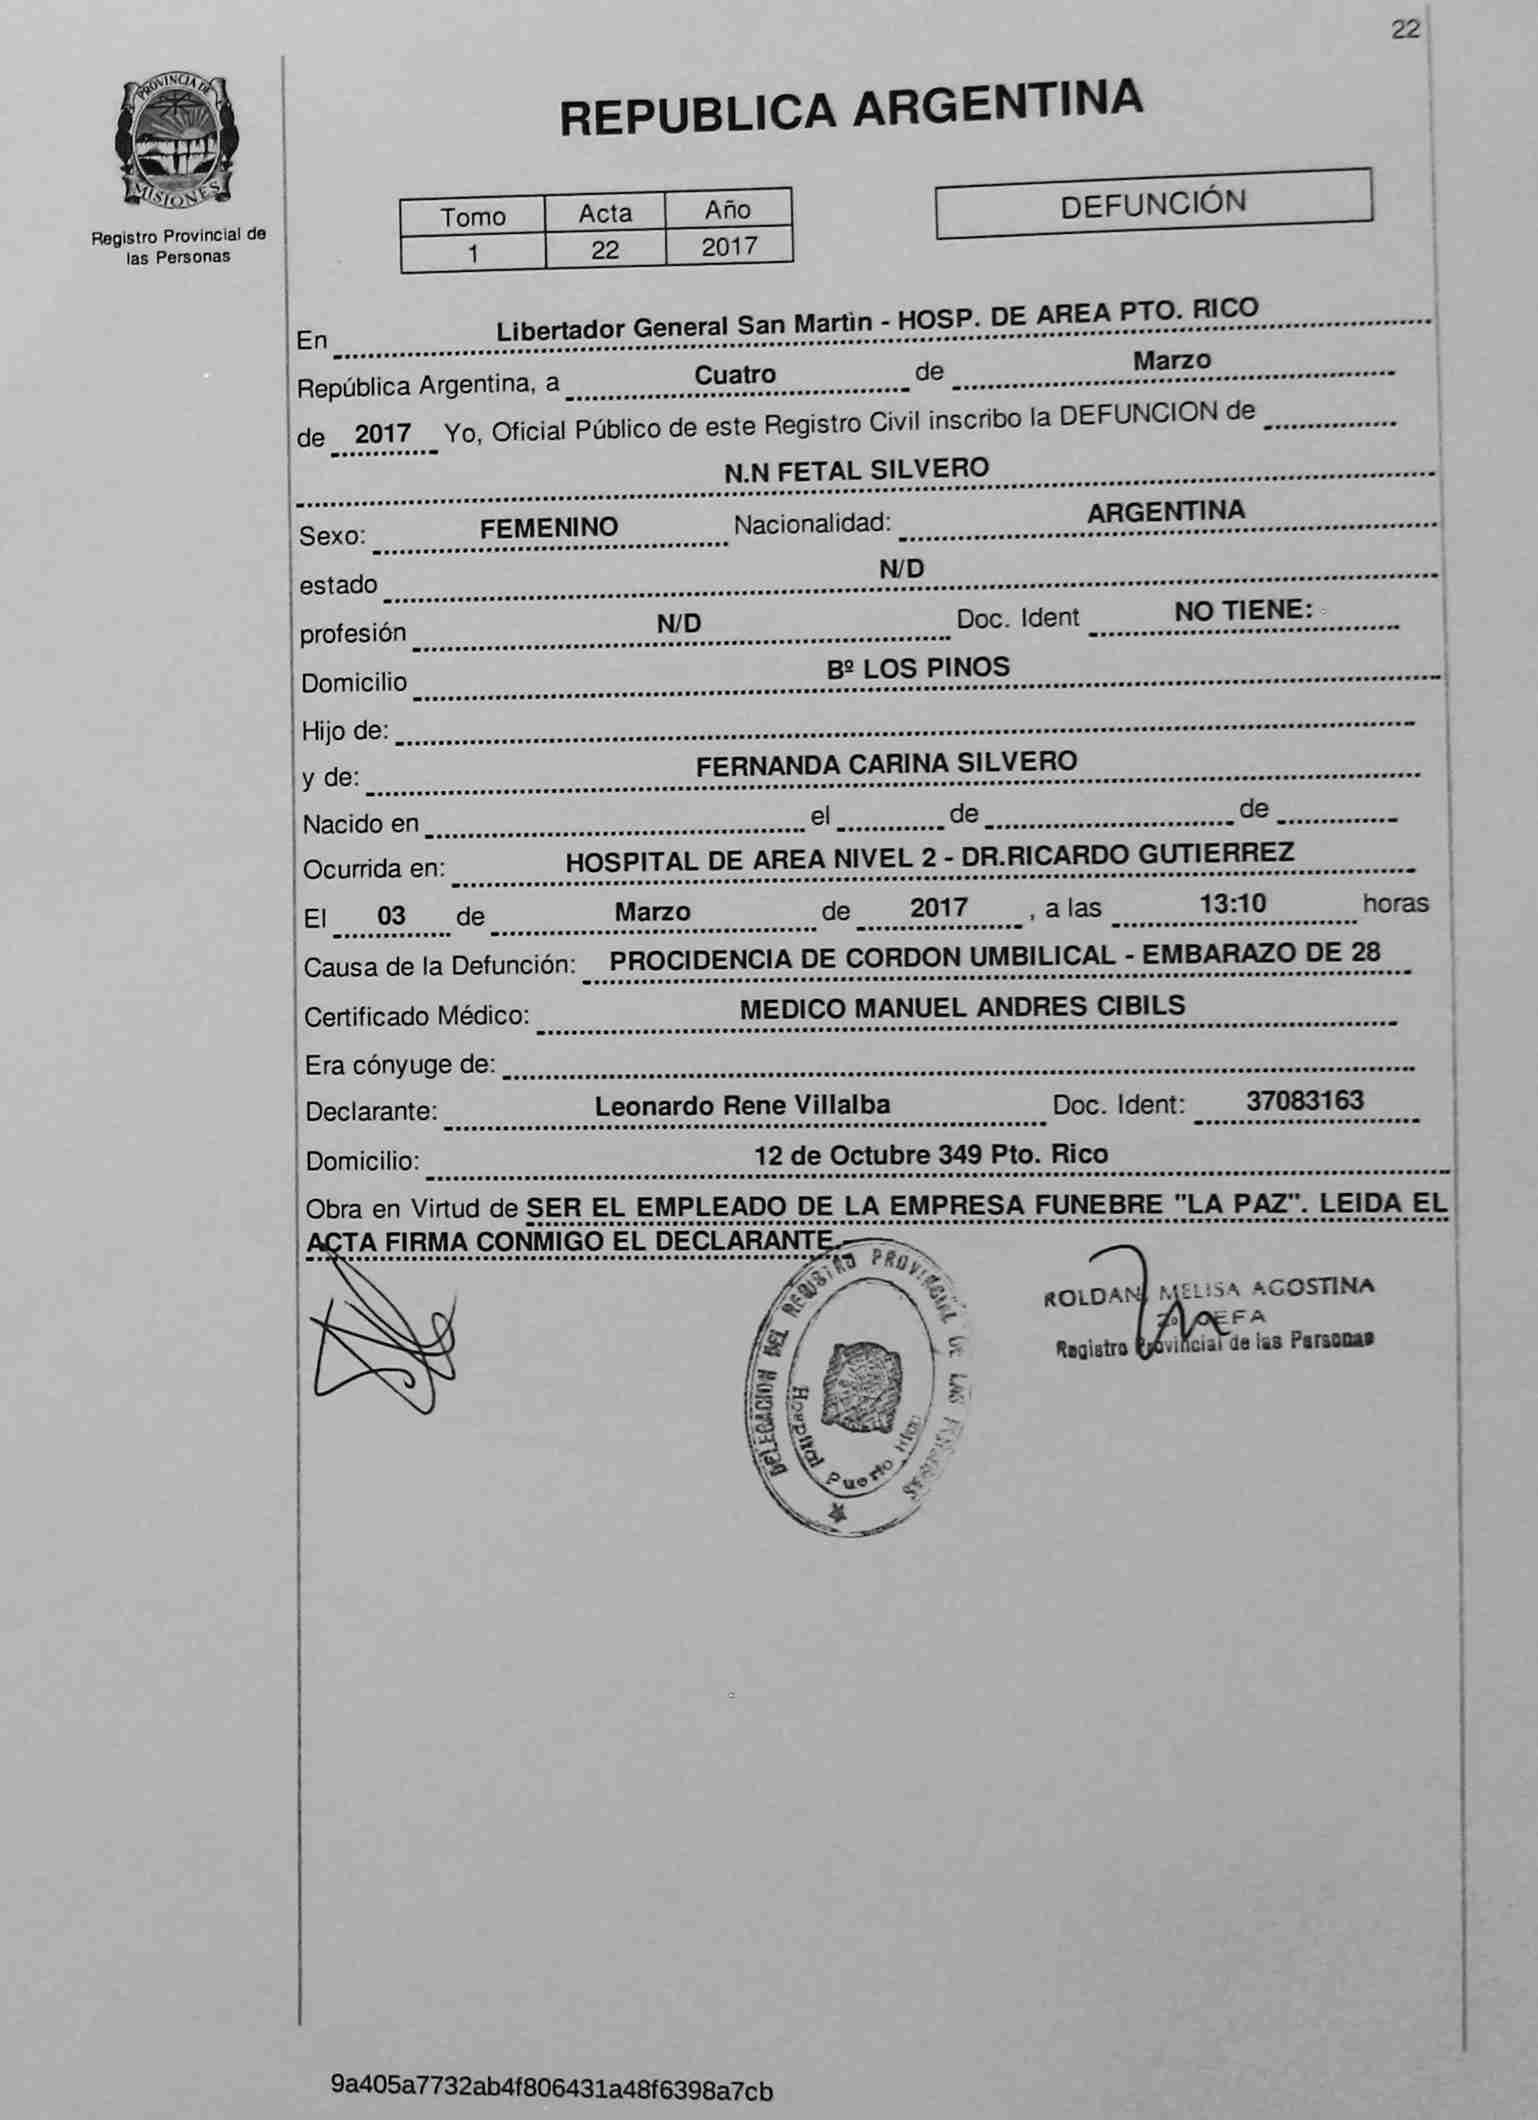 22
PROVINCIA DE
MISIONES
Registro Provincial de
las Personas
REPUBLICA ARGENTINA
Tomo Acta Año
1 22 2017
DEFUNCIÓN
En Libertador General San Martìn - HOSP. DE AREA PTO. RICO
República Argentina, a Cuatro de Marzo
de 2017 Yo, Oficial Público de este Registro Civil inscribo la DEFUNCION de
N.N FETAL SILVERO
Sexo: FEMENINO Nacionalidad: ARGENTINA
estado N/D
profesión N/D Doc. Ident NO TIENE:
Domicilio Bº LOS PINOS
Hijo de:
y de: FERNANDA CARINA SILVERO
Nacido en el de de
Ocurrida en: HOSPITAL DE AREA NIVEL 2 - DR.RICARDO GUTIERREZ
El 03 de Marzo de 2017 , a las 13:10 horas
Causa de la Defunción: PROCIDENCIA DE CORDON UMBILICAL - EMBARAZO DE 28
Certificado Médico: MEDICO MANUEL ANDRES CIBILS
Era cónyuge de:
Declarante: Leonardo Rene Villalba Doc. Ident: 37083163
Domicilio: 12 de Octubre 349 Pto. Rico
Obra en Virtud de SER EL EMPLEADO DE LA EMPRESA FUNEBRE "LA PAZ". LEIDA EL
ACTA FIRMA CONMIGO EL DECLARANTE.-
DELEGACION DEL REGISTRO PROVINCIAL DE LAS PERSONAS
Hospital Puerto Rico
ROLDAN, MELISA AGOSTINA
2º JEFA
Registro Provincial de las Personas
9a405a7732ab4f806431a48f6398a7cb